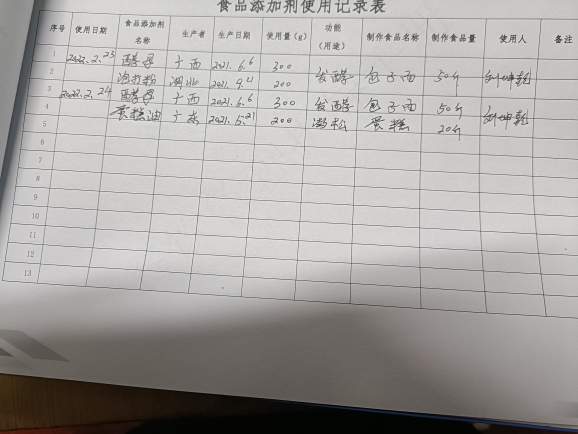 食品添加剂使用记录表
序号 使用日期 食品添加剂名称 生产者 生产日期 使用量(g) 功能(用途) 制作食品名称 制作食品量 使用人 备注
1 2022.2.23 酵母 广西 2021.6.6 300
2 泡打粉 湖北 2021.9.21 200 发酵 包子面 50斤
3 2022.2.24 酵母 广西 2021.6.6 300 发酵 包子面 50斤
4 蛋糕油 广东 2021.5.21 200 膨松 蛋糕 20斤
5
6
7
8
9
10
11
12
13